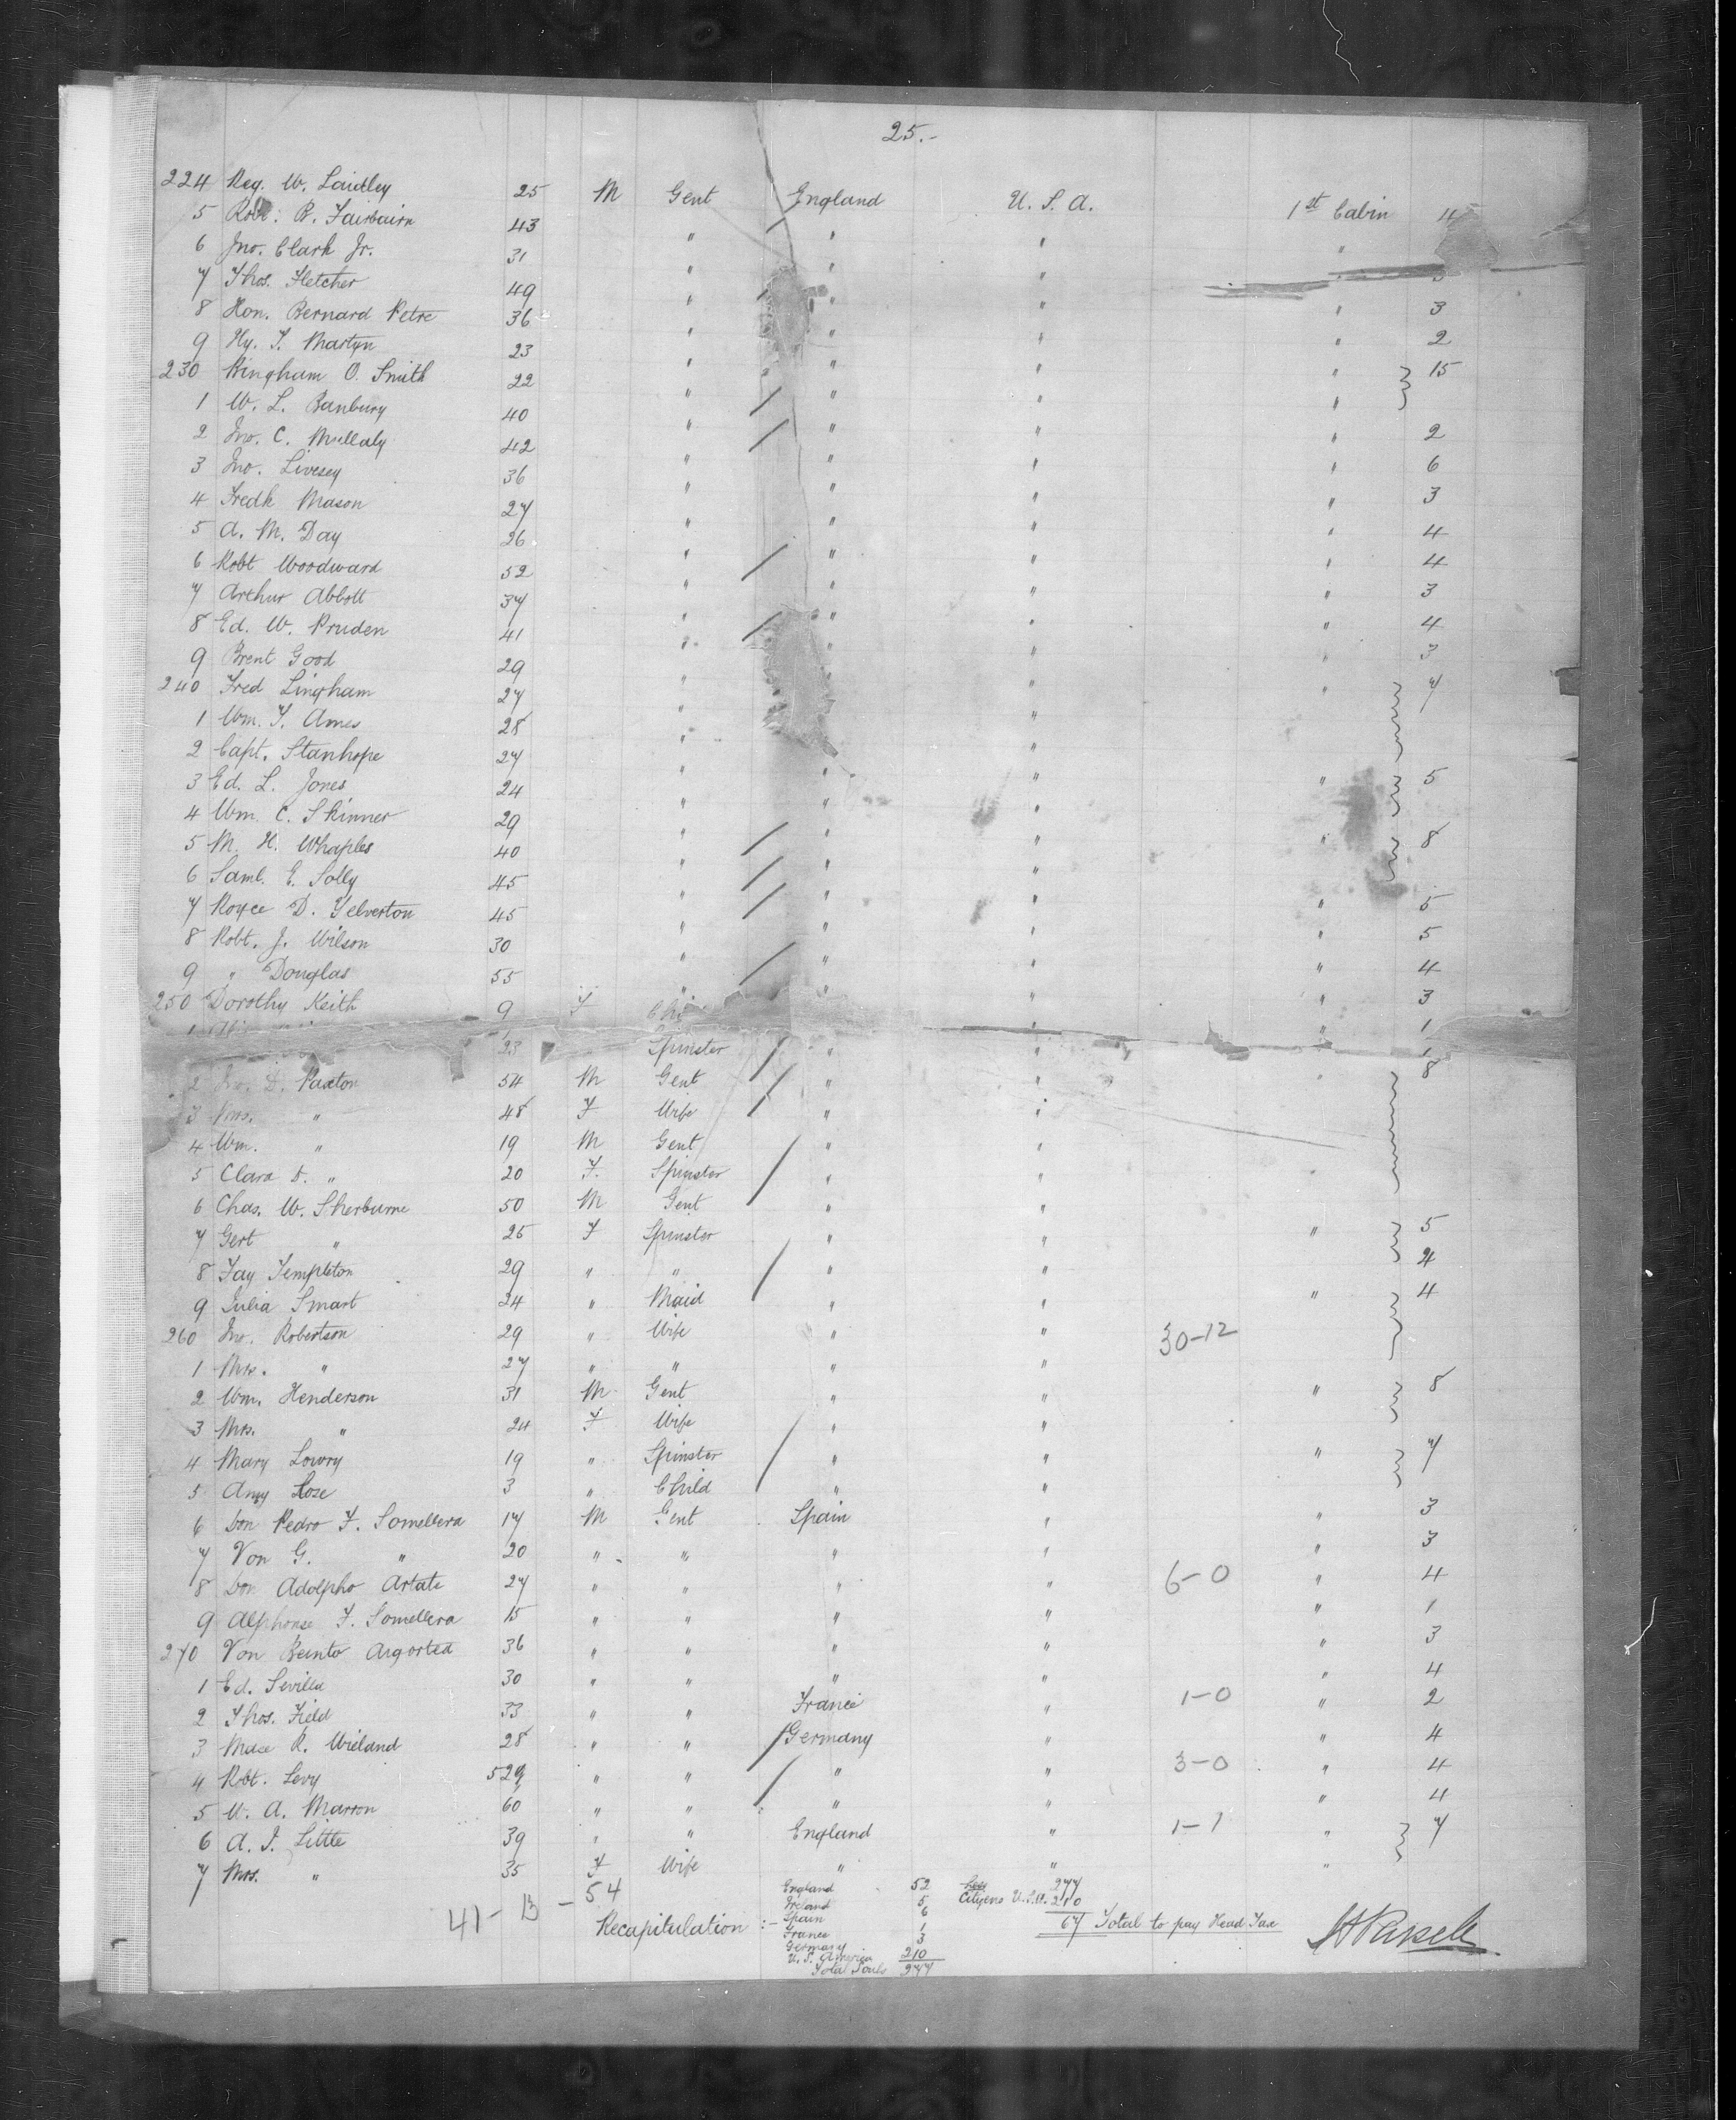 25.-
224 Reg. W. Laidley 25 M Gent England U. S. A. 1st Cabin 4
5 Robt. B. Fairbairn 43 " " " "
6 Jno. Clark Jr. 31 " " "
7 Thos. Fletcher 49 " " " " 3
8 Hon. Bernard Petre 36 " " " " 3
9 Hy. T. Martyn 23 " " " " 2
230 Bingham O. Smith 22 " " " " 15
1 W. L. Banbury 40 " " " "
2 Jno. C. Mullaly 42 " " " " 2
3 Jno. Livesey 36 " " " " 6
4 Fredk Mason 27 " " " " 3
5 A. M. Day 26 " " " " 4
6 Robt Woodward 52 " " " " 4
7 Arthur Abbott 37 " " " " 3
8 Ed. W. Pruden 41 " " " " 4
9 Brent Good 29 " " " 3
240 Fred Lingham 27 " " " 7
1 Wm. T. Ames 28 " "
2 Capt. Stanhope 27 " " "
3 Ed. L. Jones 24 " " " " 5
4 Wm. C. Skinner 29 " " "
5 M. H. Whaples 40 " " " " 8
6 Saml. E. Solly 45 " " "
7 Royce D. Yelverton 45 " " " " 5
8 Robt. J. Wilson 30 " " " " 5
9 " Douglas 55 " " " " 4
250 Dorothy Keith 9 F Chi " " 3
1 23 Spinster " " " 1
2 Jno. D. Paxton 54 M Gent " " 8
3 Mrs. " 48 F Wife " "
4 Wm. " 19 M Gent " "
5 Clara D. " 20 F. Spinster " " "
6 Chas. W. Sherburne 50 M Gent " "
7 Gert " 25 F Spinster " " " 5
8 Fay Templeton 29 " " " " 4
9 Julia Smart 24 " Maid " " " 4
260 Jno. Robertson 29 " Wife " " 30-12
1 Mrs. " 27 " " " "
2 Wm. Henderson 31 M Gent " " " 8
3 Mrs. " 24 F Wife " "
4 Mary Lowry 19 " Spinster " " " 7
5 Amy Rose 3 " Child " "
6 Don Pedro F. Somellera 17 M Gent Spain " " 3
7 Von G. " 20 " " " " " 3
8 Don Adolpho Artate 27 " " " " 6-0 " 4
9 Alphonse F. Somellera 15 " " " " " 1
270 Von Beinto Argorted 36 " " " " " 3
1 Ed. Sevilla 30 " " " " " 4
2 Thos. Field 33 " " France " 1-0 " 2
3 R. Wieland 28 " " Germany " " 4
4 Robt. Levy 529 " " " " 3-0 " 4
5 U. A. Marron 60 " " " " " 4
6 A. J. Little 39 " " England " 1-1 " 7
7 Mrs. " 35 F Wife " " "
41-13-54
Recapitulation :-
England 52
Ireland 5
Spain 6
France 1
Germany 3
U. S. America 210
Total Souls 277
277
Citizens U.S.A. 210
67 Total to pay Head Tax